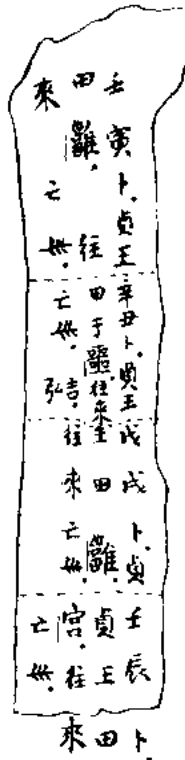 壬寅卜.貞王
田雝.往
來亡𡿧.
辛丑卜.貞王
田于噩往來
亡𡿧.弘吉.
戊戌卜.貞
王田雝.
往來亡𡿧.
壬辰卜
貞王田
宮.往來
亡𡿧.